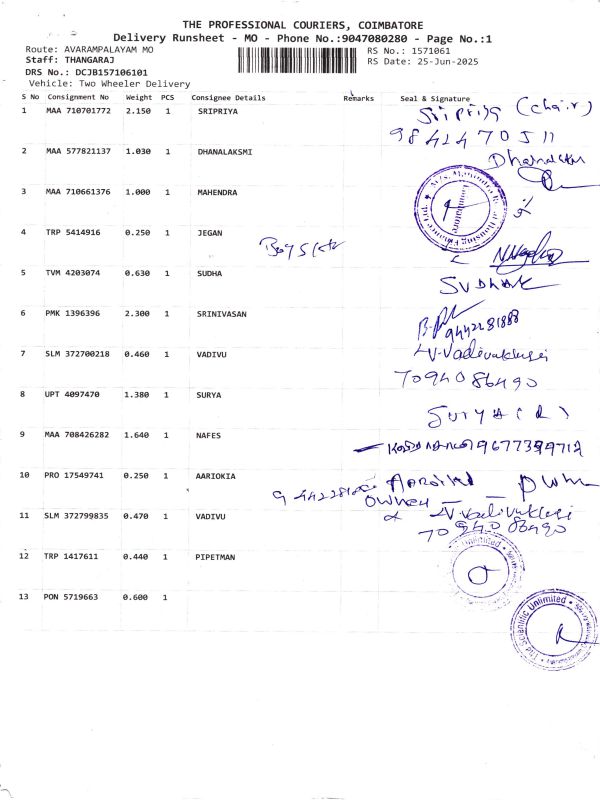 THE PROFESSIONAL COURIERS, COIMBATORE
Delivery Runsheet - MO - Phone No.:9047080280 - Page No.:1
Route: AVARAMPALAYAM MO
RS No.: 1571061
Staff: THANGARAJ
RS Date: 25-Jun-2025
DRS No.: DCJB157106101
Vehicle: Two Wheeler Delivery
S No Consignment No Weight PCS Consignee Details Remarks Seal & Signature
1 MAA 710701772 2.150 1 SRIPRIYA Sripriya (chair)
98424 70511
2 MAA 577821137 1.030 1 DHANALAKSMI
3 MAA 710661376 1.000 1 MAHENDRA
4 TRP 5414916 0.250 1 JEGAN
5 TVM 4203074 0.630 1 SUDHA SUDHAK
6 PMK 1396396 2.300 1 SRINIVASAN 9442281888
7 SLM 372700218 0.460 1 VADIVU V-Vadivukkarasi
70940 86490
8 UPT 4097470 1.380 1 SURYA SURYA
9 MAA 708426282 1.640 1 NAFES
10 PRO 17549741 0.250 1 AARIOKIA
owner
11 SLM 372799835 0.470 1 VADIVU V-Vadivukkarasi
70940 86490
12 TRP 1417611 0.440 1 PIPETMAN Unlimited
13 PON 5719663 0.600 1 Scientific Unlimited